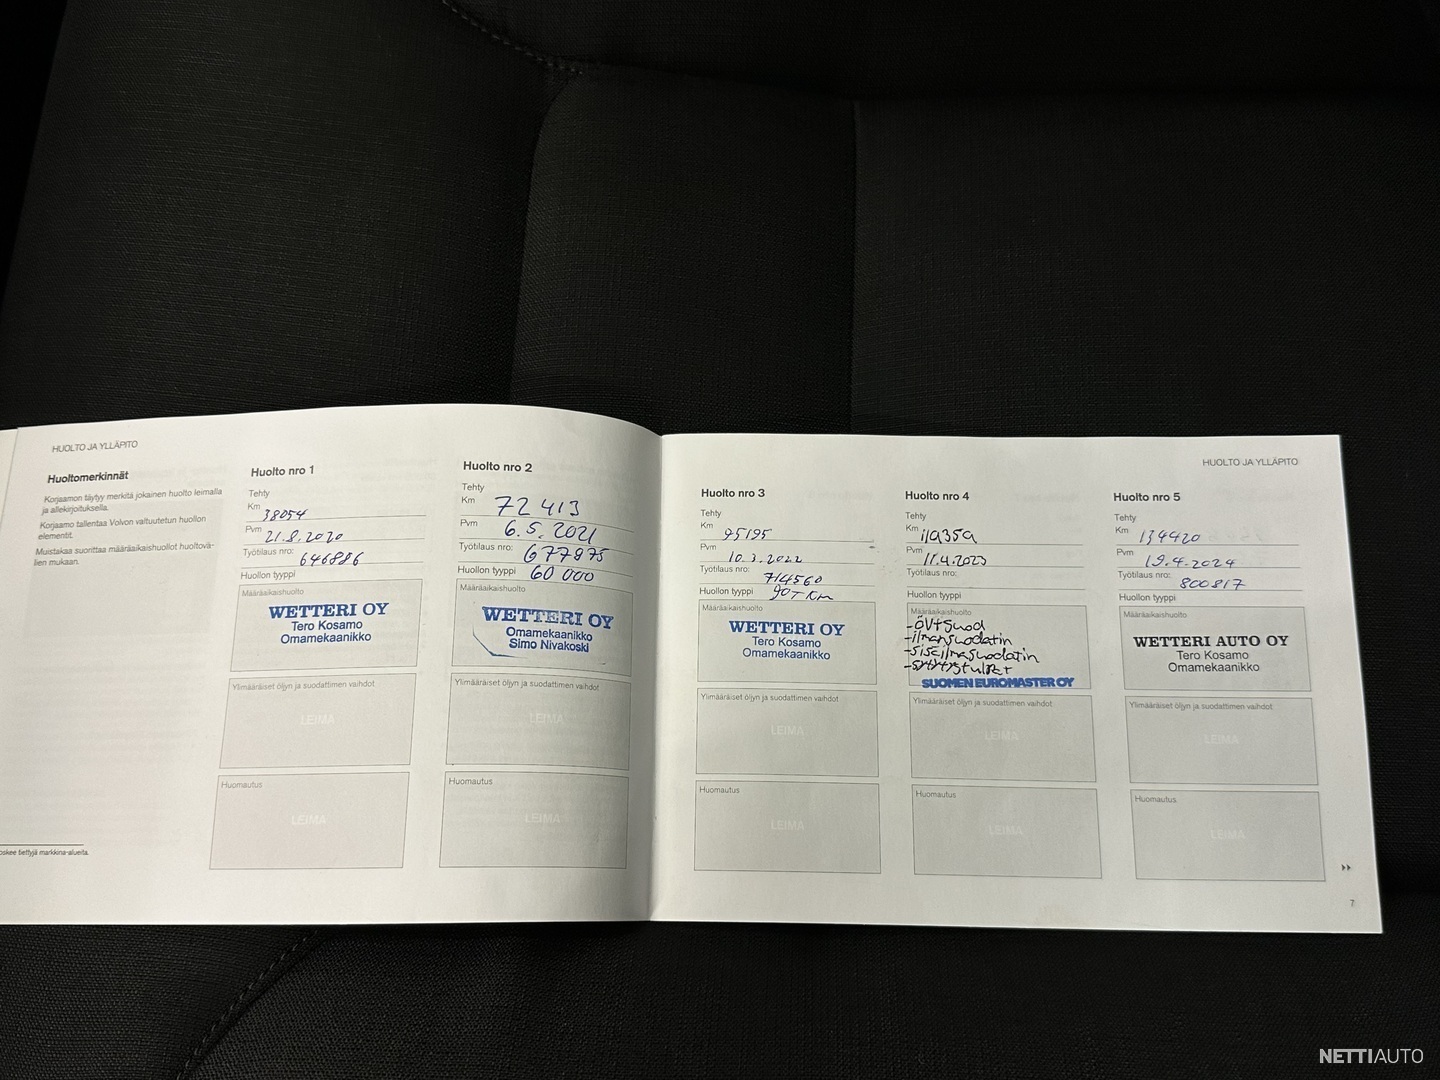 HUOLTO JA YLLÄPITO
Huoltomerkinnät
Korjaamon täytyy merkitä jokainen huolto leimalla
ja allekirjoituksella.
Korjaamo tallentaa Volvon valtuutetun huollon
elementit.
Muistakaa suorittaa määräaikaishuollot huoltovä-
lien mukaan.
oskee tiettyjä markkina-alueita.
Huolto nro 1
Tehty
Km 38054
Pvm 21.8.2020
Työtilaus nro: 646886
Huollon tyyppi
Määräaikaishuolto
WETTERI OY
Tero Kosamo
Omamekaanikko
Ylimääräiset öljyn ja suodattimen vaihdot
LEIMA
Huomautus
LEIMA
Huolto nro 2
Tehty
Km 72 413
Pvm 6.5.2021
Työtilaus nro: 677875
Huollon tyyppi 60 000
Määräaikaishuolto
WETTERI OY
Omamekaanikko
Simo Nivakoski
Ylimääräiset öljyn ja suodattimen vaihdot
LEIMA
Huomautus
LEIMA
HUOLTO JA YLLÄPITO
Huolto nro 3
Tehty
Km 95195
Pvm 10.3.2022
Työtilaus nro: 714560
Huollon tyyppi 90T Km
Määräaikaishuolto
WETTERI OY
Tero Kosamo
Omamekaanikko
Ylimääräiset öljyn ja suodattimen vaihdot
LEIMA
Huomautus
LEIMA
Huolto nro 4
Tehty
Km
Pvm 11.4.2023
Työtilaus nro:
Huollon tyyppi
Määräaikaishuolto
-ÖV+Suod
-ilmansuodatin
-sisäilmasuodatin
SUOMEN EUROMASTER OY
Ylimääräiset öljyn ja suodattimen vaihdot
LEIMA
Huomautus
LEIMA
Huolto nro 5
Tehty
Km 134420
Pvm 19.4.2024
Työtilaus nro: 800817
Huollon tyyppi
Määräaikaishuolto
WETTERI AUTO OY
Tero Kosamo
Omamekaanikko
Ylimääräiset öljyn ja suodattimen vaihdot
LEIMA
Huomautus
LEIMA
7
NETTIAUTO